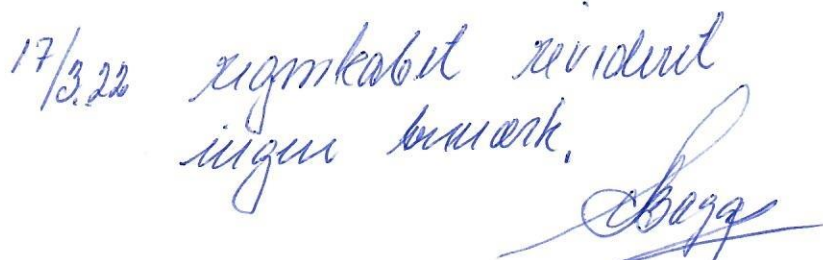 17/3.22 regnskabet revideret
ingen bemærk.